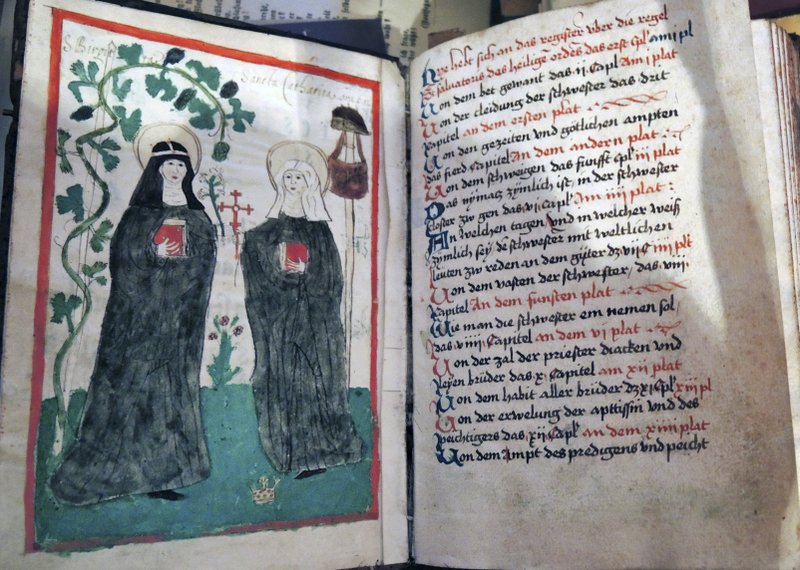 S Birgitt
Sancta Catharina
Hye hebt sich an das register über die regel
S saluatoris des heilige ordēs das erst Cpl' am i pl
Von dem bet gewant das ij. Capl' Am i plat
Von der cleidung der schwester das drit
kapitel an dem ersten plat
Von den gezeiten vnd götlichen ampten
das fierd Capitel An dem andern plat
Von dem schweigen das funfft Cpl' iij plat
Das nymāt zymlich ist, in der schwester
closter zw gen das vi Capl' An iiij plat :
An welchen tagen vnd in welcher weiß
zymlich sey dē schwester mit weltlichen
leuten zw reden an dem gyter dz vij C iiij plt
Von dem vasten der schwester, das viij.
kapitel An dem funften plat
Wie man die schwester ein nemen sol,
das viiij. Capitel an dem vi plat
Von der zal der priester diacken vnd
leyen brüder das x. Capitel am xij plat
Von dem habit aller brüder dz xi Cpl' xiij pl
Von der erwelung der apttissin vnd des
peichtigers das xij Capl' an dem xiiij plat
Von dem Ampt des predigens vnd peicht